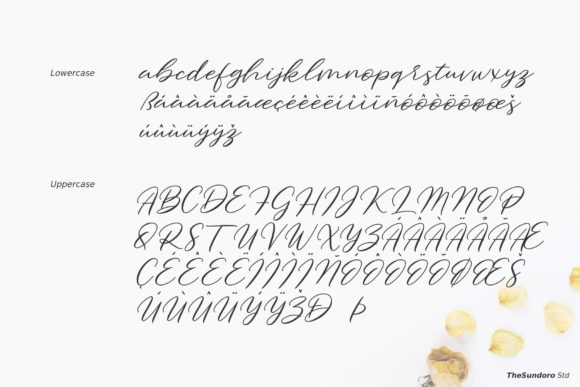 Lowercase
abcdefghijklmnopqrstuvwxyz
ßáâàäåãæçéêèëíîìïñóôòöõøœš
úûùüýÿž
Uppercase
ABCDEFGHIJKLMNOP
QRSTUVWXYZÁÂÀÄÅÃÆ
ÇÉÊÈËÍÎÌÏÑÓÔÒÖÕØŒŠ
ÚÙÛÜÝŸŽÐ Þ
TheSundoro Std